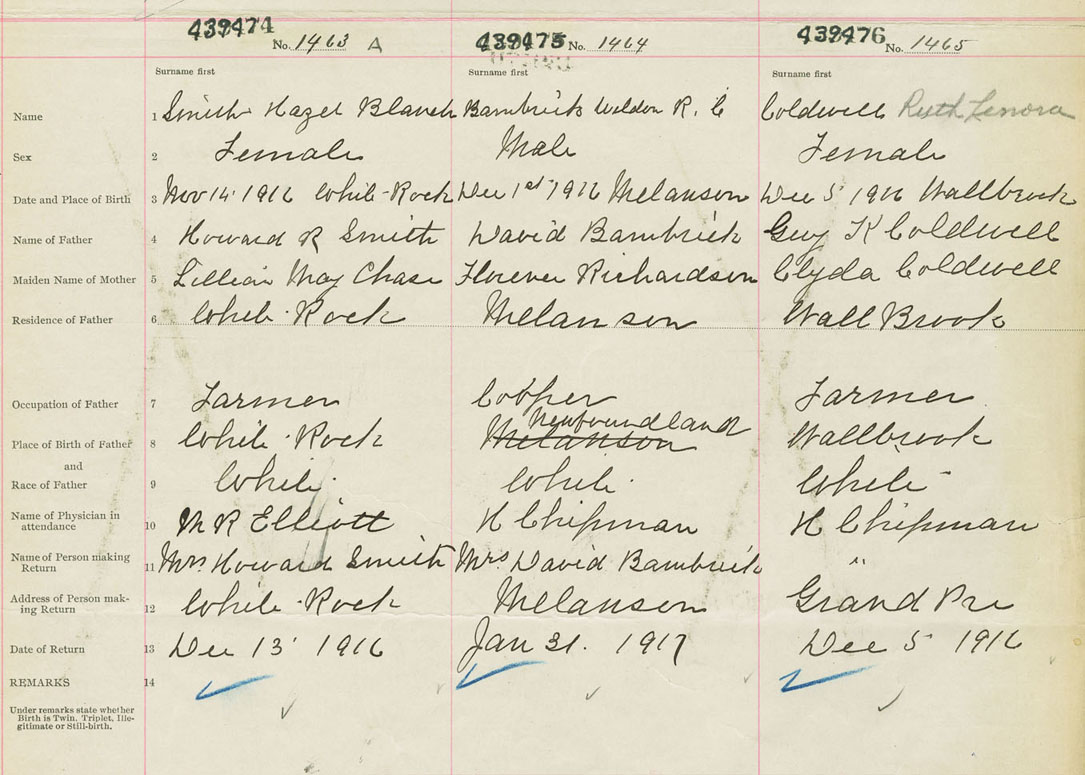 439474 No. 1463 A 439475 No. 1464 439476 No. 1465
Surname first Surname first Surname first
Name 1 Smith Hazel Blanch Bambrick Weldon R. C Coldwell Ruth Lenora
Sex 2 Female Male Female
Date and Place of Birth 3 Nov 14 1916 White-Rock Dec 1st 1916 Melanson Dec 5 1916 Wallbrook
Name of Father 4 Howard R Smith David Bambrick Guy K Coldwell
Maiden Name of Mother 5 Lillian May Chase Florence Richardson Clyda Coldwell
Residence of Father 6 White-Rock Melanson Wall Brook
Occupation of Father 7 Farmer Farmer
Newfoundland
Place of Birth of Father 8 White-Rock Melanson Wallbrook
and
Race of Father 9 White White White
Name of Physician in
attendance 10 M R Elliott H Chipman H Chipman
Name of Person making
Return 11 Mrs Howard Smith Mrs David Bambrick "
Address of Person mak-
ing Return 12 White-Rock Melanson Grand Pre
Date of Return 13 Dec 13 1916 Jan 31. 1917 Dec 5 1916
REMARKS 14
Under remarks state whether
Birth is Twin, Triplet, Ille-
gitimate or Still-birth.